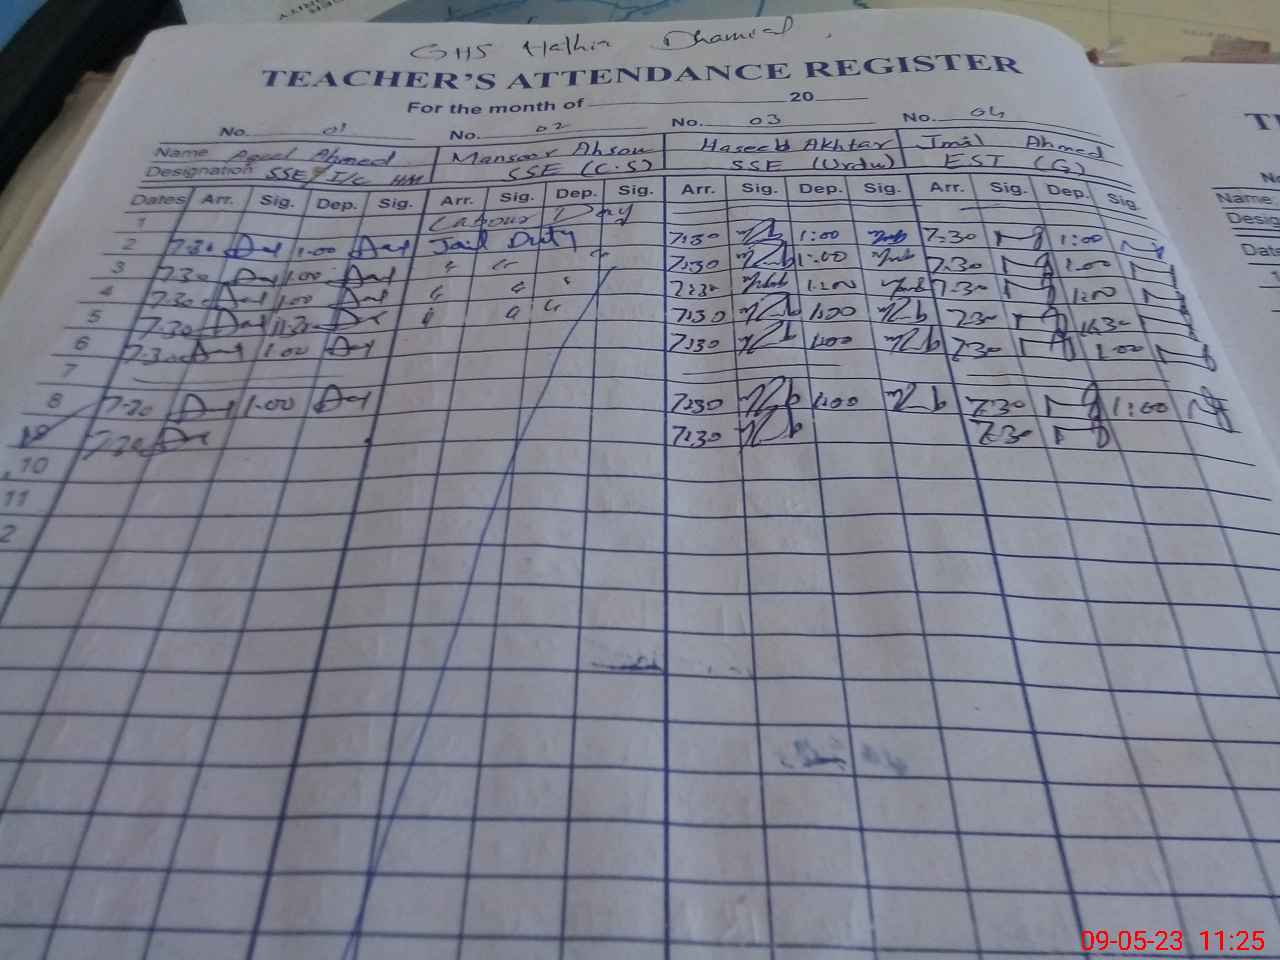 GHS Hathia Dhamial.
TEACHER'S ATTENDANCE REGISTER
For the month of 20
No. 01 No. 02 No. 03 No. 04
Name Aqeel Ahmed Mansoor Ahsan Haseeb Akhtar Jmil Ahmed
Designation SSE I/C HM SSE (C.S) SSE (Urdu) EST (G)
Dates Arr. Sig. Dep. Sig. Arr. Sig. Dep. Sig. Arr. Sig. Dep. Sig. Arr. Sig. Dep. Sig.
1 Labour Day
2 7:30 1:00 Jail Duty 7:30 1:00 7:30 1:00
3 7.30 1.00 " " " 7:30 1:00 7:30 1:00
4 7.30 1.00 " " " 7:30 1:00 7:30 1:00
5 7.30 11.30 " " " 7:30 1:00 7:30 11:30
6 7.30 1.00 7:30 1:00 7:30 1:00
7
8 7:30 1:00 7:30 1:00 7:30 1:00
7:30 7:30 7:30
10
11
2
T
No
Name
Desig
Date
09-05-23 11:25